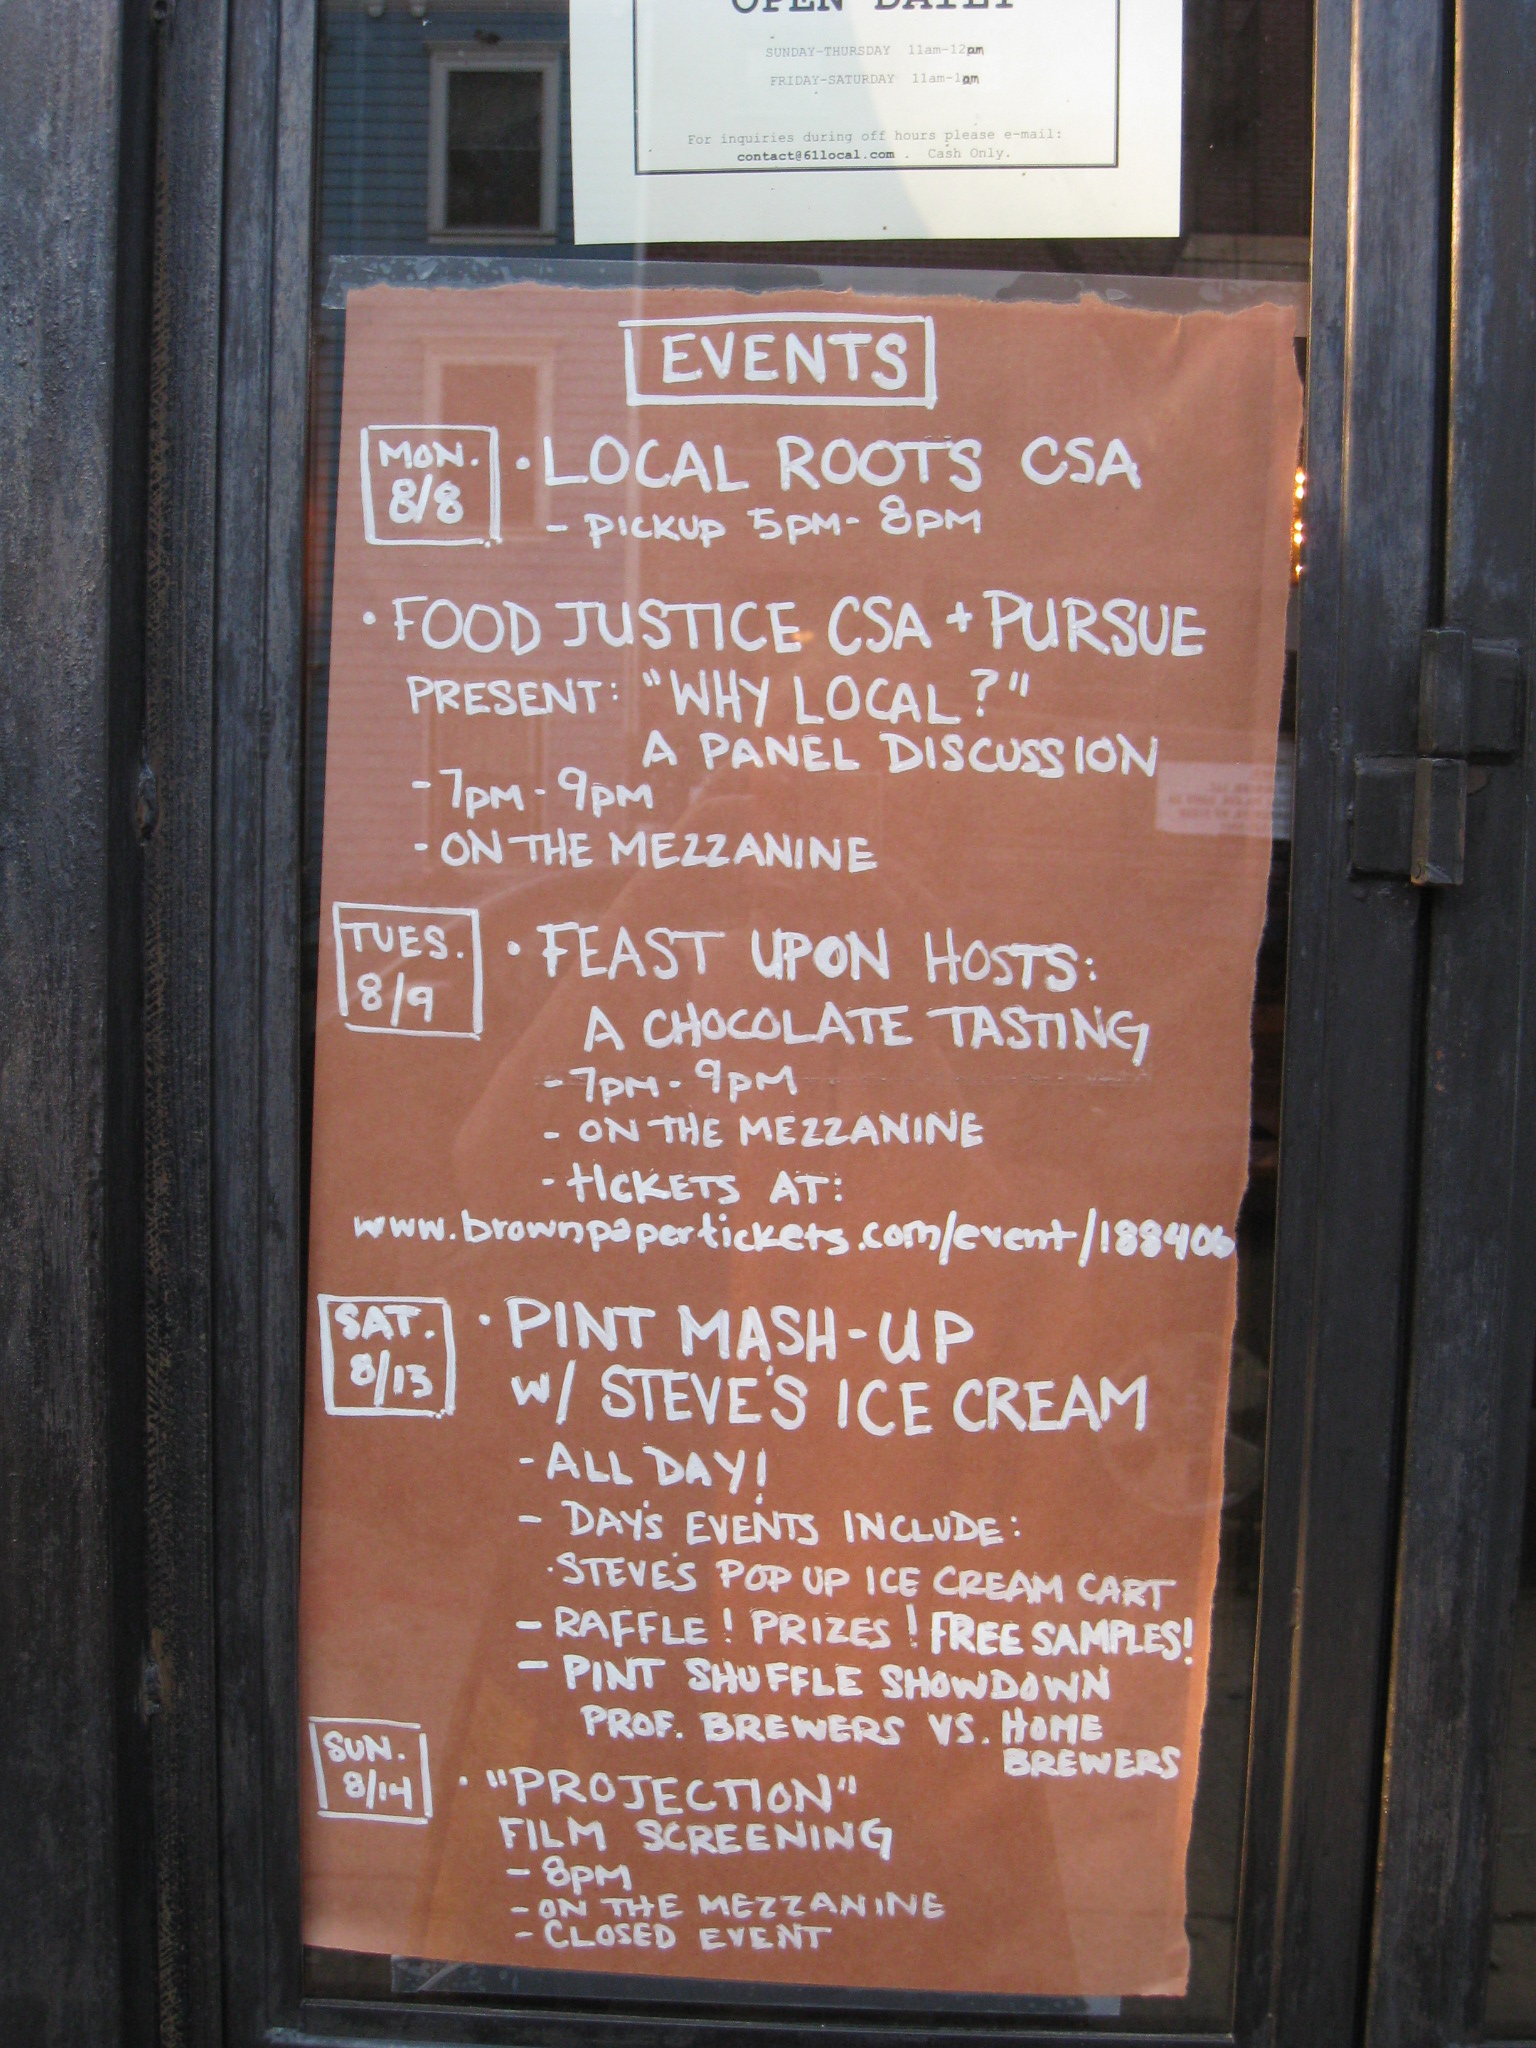 OPEN DAILY
SUNDAY-THURSDAY 11am-12am
FRIDAY-SATURDAY 11am-1am
For inquiries during off hours please e-mail:
contact@61local.com . Cash Only.
EVENTS
MON.
8/8
• LOCAL ROOTS CSA
- PICKUP 5PM - 8PM
• FOOD JUSTICE CSA + PURSUE
PRESENT: "WHY LOCAL?"
A PANEL DISCUSSION
- 7PM - 9PM
- ON THE MEZZANINE
TUES.
8/9
• FEAST UPON HOSTS:
A CHOCOLATE TASTING
- 7PM - 9PM
- ON THE MEZZANINE
- TICKETS AT:
www.brownpapertickets.com/event/188406
SAT.
8/13
• PINT MASH-UP
W/ STEVE'S ICE CREAM
- ALL DAY!
- DAY'S EVENTS INCLUDE:
· STEVE'S POP UP ICE CREAM CART
- RAFFLE! PRIZES! FREE SAMPLES!
- PINT SHUFFLE SHOWDOWN
PROF. BREWERS VS. HOME
BREWERS
SUN.
8/14
• "PROJECTION"
FILM SCREENING
- 8PM
- ON THE MEZZANINE
- CLOSED EVENT